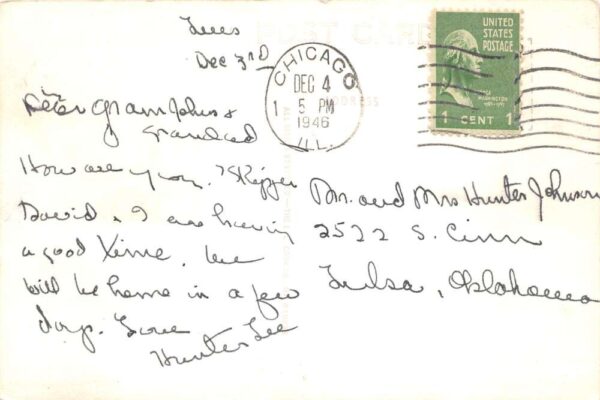 Tues
Dec 3rd
Dear Gram Johns &
grandad
How are you. Skipper
David & I are having
a good time. We
will be home in a few
days. Love
Hunter Lee
POST CARD
ADDRESS
CHICAGO
DEC 4
1 5 PM
1946
ILL.
UNITED
STATES
POSTAGE
WASHINGTON
1 CENT 1
Mr. and Mrs Hunter Johnson
2522 S. Cinn
Tulsa, Oklahoma